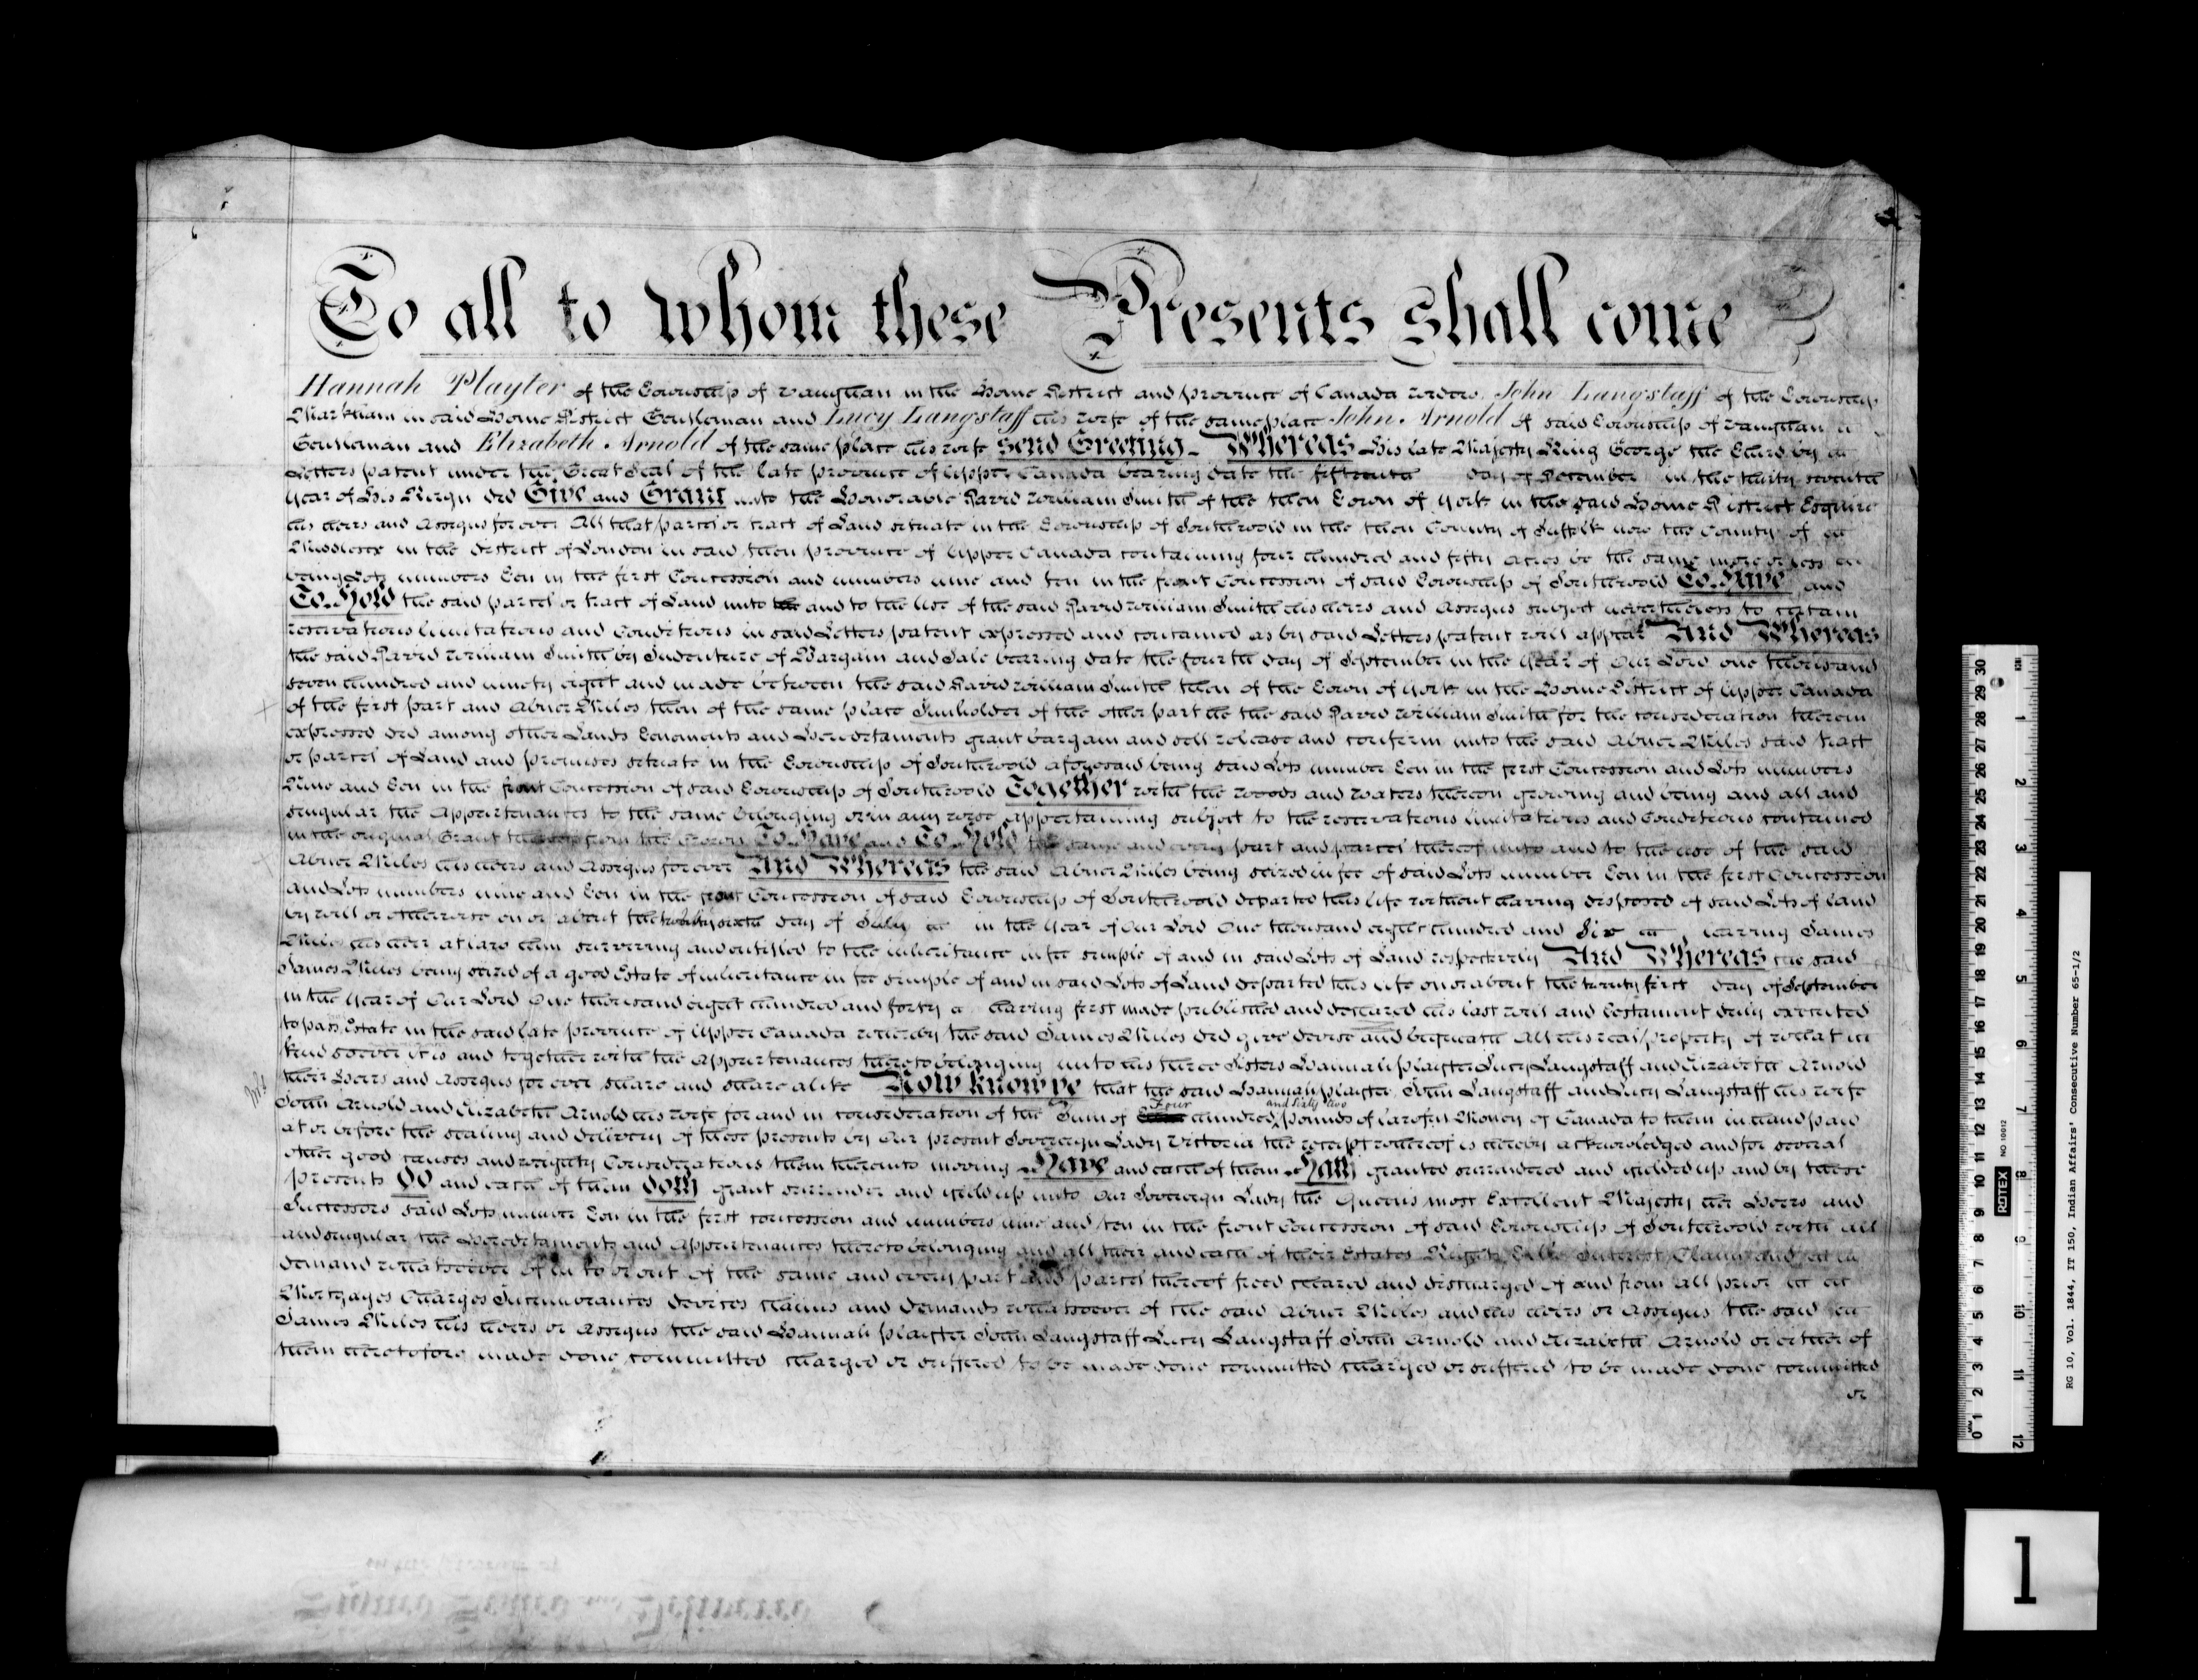 To all to whom these Presents shall come
Hannah Playter of the Township of Vaughan in the Home District and province of Canada widow, John Langstaff of the Township
Markham in said Home District Gentleman and Lucy Langstaff his wife of the same place John Arnold of said Township of Vaughan
Gentleman and Elizabeth Arnold of the same place his wife Send Greeting - Whereas His late Majesty King George the Third by
Letters patent under the Great Seal of the late province of Upper Canada bearing date the fifteenth day of December in the thirty seventh
Year of His Reign did Give and Grant unto the Honorable David William Smith of the then Town of York in the said Home District Esquire
his heirs and Assigns for ever All that parcel or tract of Land situate in the Township of Southwold in the then County of Suffolk now the County of
Middlesex in the District of London in said then province of Upper Canada containing four hundred and fifty Acres be the same more or less
being Lots numbers Ten in the first Concession and numbers nine and ten in the front Concession of said Township of Southwold To Have and
To Hold the said parcel or tract of Land unto and to the Use of the said David William Smith his heirs and Assigns subject nevertheless to certain
reservations limitations and Conditions in said Letters patent expressed and contained as by said Letters patent will appear And Whereas
the said David William Smith by Indenture of Bargain and Sale bearing date the fourth day of September in the Year of Our Lord one thousand
seven hundred and ninety eight and made between the said David William Smith then of the Town of York in the Home District of Upper Canada
of the first part and Abner Miles then of the same place Innholder of the other part he the said David William Smith for the consideration therein
expressed did among other Lands Tenements and Hereditaments grant bargain and sell release and confirm unto the said Abner Miles said tract
or parcel of Land and premises situate in the Township of Southwold aforesaid being said Lots number Ten in the first Concession and Lots numbers
Nine and Ten in the front Concession of said Township of Southwold Together with the woods and waters thereon growing and being and all and
singular the Appurtenances to the same belonging or in any wise appertaining subject to the reservations limitations and Conditions contained
in the original Grant thereof from the Crown To Have and To Hold the same and every part and parcel thereof unto and to the use of the said
Abner Miles his heirs and Assigns for ever And Whereas the said Abner Miles being seized in fee of said Lots number Ten in the first Concession
and Lots numbers nine and Ten in the front Concession of said Township of Southwold departed this life without having disposed of said Lots of land
by will or otherwise on or about the twenty sixth day of July in the Year of Our Lord One thousand eight hundred and Six leaving James
Miles his heir at law him surviving and entitled to the inheritance in fee simple of and in said Lots of Land respectively And Whereas the said
James Miles being seized of a good Estate of inheritance in fee simple of and in said Lots of Land departed this life on or about the twenty first day of September
in the Year of Our Lord One thousand eight hundred and forty having first made published and declared his last will and testament duly executed
to pass Estate in the said late province of Upper Canada whereby the said James Miles did give devise and bequeath All his real property of what
kind soever it is and together with the Appurtenances thereto belonging unto his three Sisters Hannah Playter Lucy Langstaff and Elizabeth Arnold
their Heirs and Assigns for ever share and share alike Now know ye that the said Hannah Playter John Langstaff and Lucy Langstaff his wife
John Arnold and Elizabeth Arnold his wife for and in consideration of the Sum of Four hundred and sixty two pounds of lawful Money of Canada to them in hand paid
at or before the sealing and delivery of these presents by Our present Sovereign Lady Victoria the receipt whereof is hereby acknowledged and for several
other good causes and weighty Considerations them thereunto moving Have and each of them Hath granted surrendered and yielded up and by these
presents Do and each of them Doth grant surrender and yield up unto Our Sovereign Lady the Queens most Excellent Majesty her Heirs and
Successors said Lots number Ten in the first concession and numbers nine and ten in the front Concession of said Township of Southwold with all
and singular the Hereditaments and Appurtenances thereto belonging and all their and each of their Estates Right Title Interest Claim and
demand whatsoever of in to or out of the same and every part and parcel thereof freed cleared and discharged of and from all prior
Mortgages Charges Incumbrances devises claims and demands whatsoever of the said Abner Miles and his heirs or Assigns the said
James Miles his heirs or Assigns the said Hannah Playter John Langstaff Lucy Langstaff John Arnold and Elizabeth Arnold or either of
them heretofore made done committed charged or suffered to be made done committed charged or suffered to be made done committed
or
RG 10, Vol. 1844, IT 150, Indian Affairs' Consecutive Number 65-1/2
ROTEX NO 10012
1